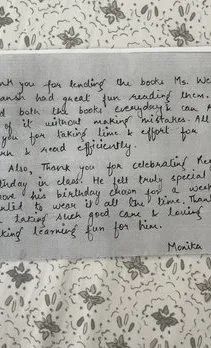 nk you for lending the books Ms. We
had great fun reading them.
d both the books everyday & can
of it without making mistakes. All
you for taking time & effort for
n & read efficiently.
Also, Thank you for celebrating
day in class. He felt truly special
ove his birthday crown for a week
nted to wear it all the time. Than
taking such good care & loving
king learning fun for him.
Monika